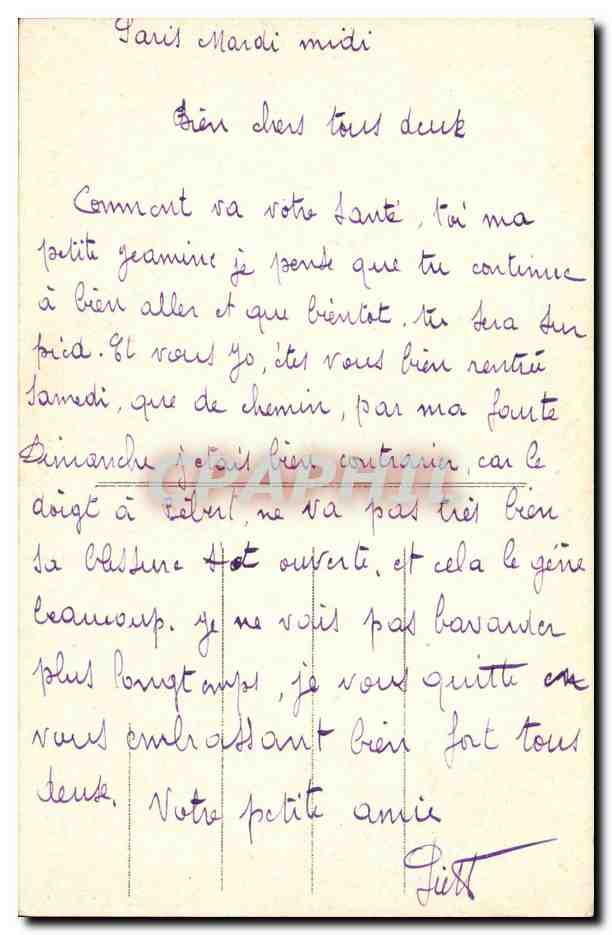 Paris Mardi midi
Bien chers tous deux
Comment va votre santé, toi ma
petite Jeamine je pense que tu continue
à bien aller et que bientot, tu sera sur
pied. Et vous Jo, êtes vous bien rentré
Samedi, que de chemin, par ma faute
Dimanche j'etais bien contrarier, car le
CPAPHIL
doigt à Bébert, ne va pas très bien
sa blessure est ouverte, et cela le gène
beaucoup. Je ne vais pas bavarder
plus longtemps, je vous quitte en
vous embrassant bien fort tous
deux. Votre petite amie